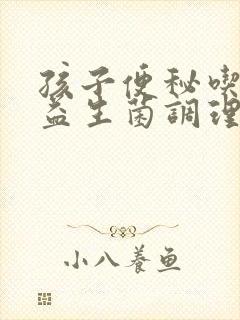 孩子便秘喫
益生菌調理
小八養魚